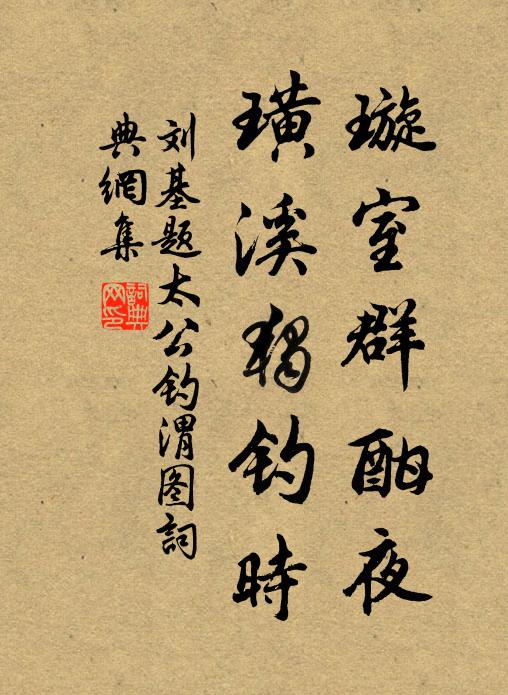 璇室群酣夜
璜溪独钓時
刘基题太公钓渭图詞
典網集
詞典網印